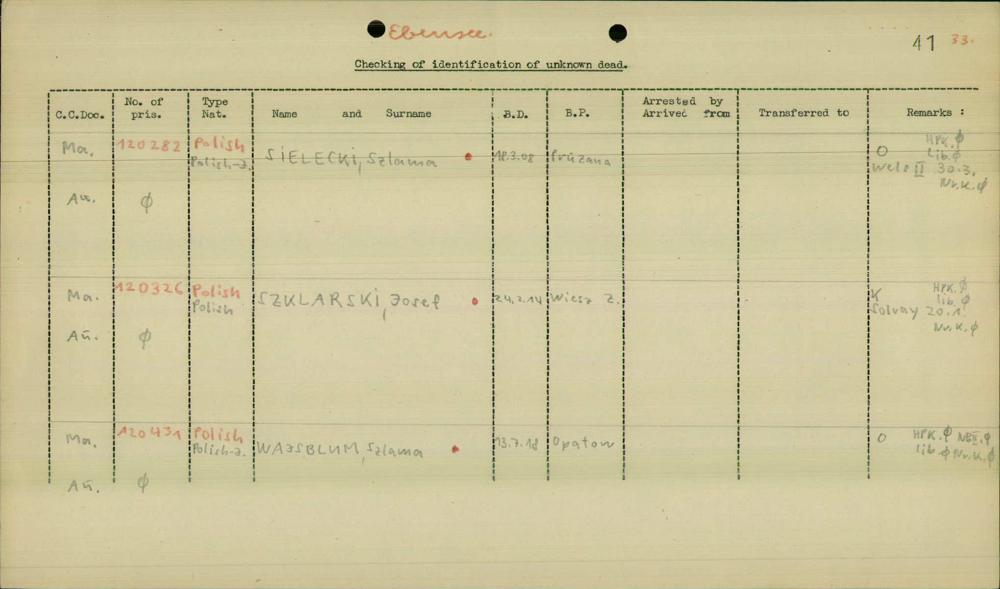 Ebensee.
41 33.
Checking of identification of unknown dead.
C.C.Doc. No. of pris. Type Nat. Name and Surname B.D. B.P. Arrested by Arrived from Transferred to Remarks :
Ma. 120282 Polish SIELECKI, Szlama 18.3.08 Pruzana O HPK. ϕ
Polish-J. Lib. ϕ
Wels II 30.3.
Nr.K. ϕ
Au. ϕ
Ma. 120326 Polish SZKLARSKI, Josef 24.2.14 Wiesz Z. K HPK. ϕ
Polish lib. ϕ
Solvay 20.1
Nr.K. ϕ
Au. ϕ
Ma. 120431 Polish WAJSBLUM, Szlama 13.7.18 Opatow O HPK. ϕ
Polish-J. lib. ϕ Nr.K. ϕ
Au. ϕ